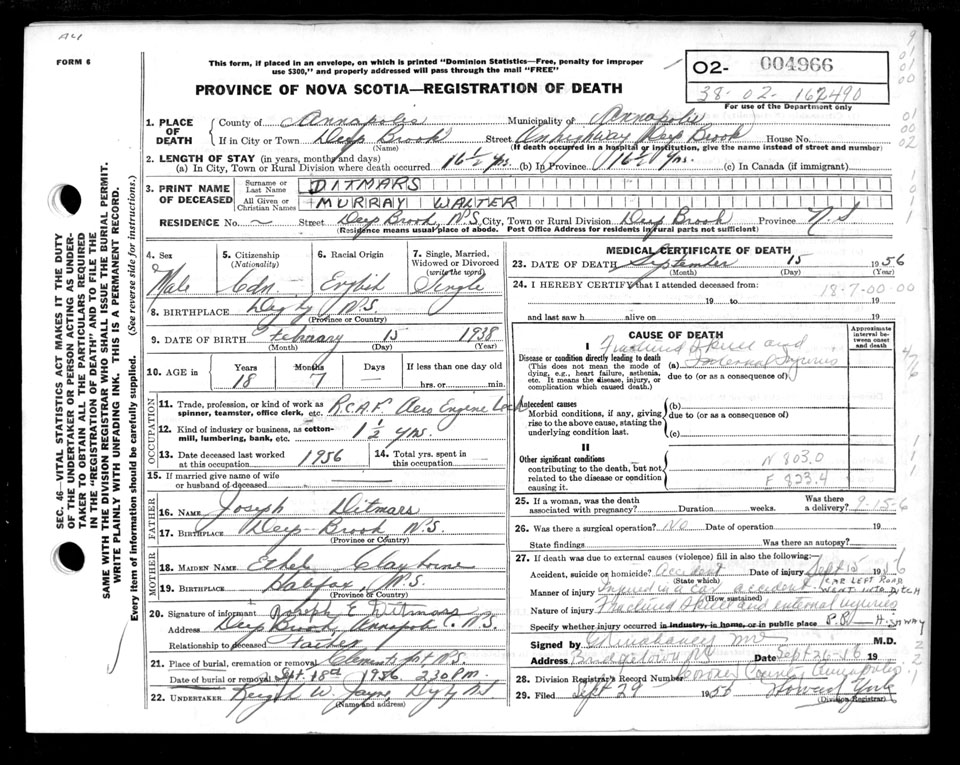 FORM 6
This form, if placed in an envelope, on which is printed "Dominion Statistics—Free, penalty for improper
use $300," and properly addressed will pass through the mail "FREE"
PROVINCE OF NOVA SCOTIA—REGISTRATION OF DEATH
02- 004966
38-02-162490
For use of the Department only
1. PLACE OF DEATH
County of Annapolis Municipality of Annapolis
If in City or Town Deep Brook Street On highway Deep Brook House No.
(Name) (If death occurred in a hospital or institution, give the name instead of street and number)
2. LENGTH OF STAY (in years, months and days)
(a) In City, Town or Rural Division where death occurred 16½ Yrs. (b) In Province 16½ Yrs. (c) In Canada (if immigrant)
3. PRINT NAME OF DECEASED
Surname or Last Name DITMARS
All Given or Christian Names MURRAY WALTER
RESIDENCE No. — Street Deep Brook, N.S. City, Town or Rural Division Deep Brook Province N.S.
(Residence means usual place of abode. Post Office Address for residents in rural parts not sufficient)
SEC. 46—VITAL STATISTICS ACT MAKES IT THE DUTY
OF THE UNDERTAKER OR PERSON ACTING AS UNDER-
TAKER TO OBTAIN ALL THE PARTICULARS REQUIRED
IN THE "REGISTRATION OF DEATH" AND TO FILE THE
SAME WITH THE DIVISION REGISTRAR WHO SHALL ISSUE THE BURIAL PERMIT.
WRITE PLAINLY WITH UNFADING INK. THIS IS A PERMANENT RECORD.
Every item of information should be carefully supplied. (See reverse side for instructions.)
4. Sex Male
5. Citizenship (Nationality) Cdn
6. Racial Origin English
7. Single, Married, Widowed or Divorced (write the word) Single
8. BIRTHPLACE Digby N.S.
(Province or Country)
9. DATE OF BIRTH February 15 1938
(Month) (Day) (Year)
10. AGE in Years 18 Months 7 Days — If less than one day old hrs. or min.
OCCUPATION
11. Trade, profession, or kind of work as
spinner, teamster, office clerk, etc. R.C.A.F. Aero Engine
12. Kind of industry or business, as cotton-
mill, lumbering, bank, etc. 1½ yrs.
13. Date deceased last worked
at this occupation 1956
14. Total yrs. spent in
this occupation
15. If married give name of wife
or husband of deceased
FATHER
16. NAME Joseph Ditmars
17. BIRTHPLACE Deep Brook N.S.
(Province or Country)
MOTHER
18. MAIDEN NAME Ethel Clayborne
19. BIRTHPLACE Halifax, N.S.
(Province or Country)
20. Signature of informant Joseph E Ditmars
Address Deep Brook, Annapolis C. N.S.
Relationship to deceased Father
21. Place of burial, cremation or removal Clementsport N.S.
Date of burial or removal Sept. 18th 1956 2.30 P.M.
22. UNDERTAKER W. Jayne Digby N.S.
(Name and address)
MEDICAL CERTIFICATE OF DEATH
23. DATE OF DEATH September 15 1956
(Month) (Day) (Year)
24. I HEREBY CERTIFY that I attended deceased from:
18-7-00-00
19 to 19
and last saw h alive on 19
CAUSE OF DEATH
Approximate interval between onset and death
I
Disease or condition directly leading to death
(This does not mean the mode of
dying, e.g., heart failure, asthenia,
etc. It means the disease, injury, or
complication which caused death.)
(a) Fractured Skull and
internal injuries
due to (or as a consequence of)
Antecedent causes
Morbid conditions, if any, giving
rise to the above cause, stating the
underlying condition last.
(b)
due to (or as a consequence of)
(c)
II
Other significant conditions
contributing to the death, but not
related to the disease or condition
causing it.
N 803.0
E 823.4
25. If a woman, was the death
associated with pregnancy? Duration weeks. Was there a delivery? 9-15-6
26. Was there a surgical operation? No Date of operation 19
State findings Was there an autopsy?
27. If death was due to external causes (violence) fill in also the following:
Accident, suicide or homicide? Accident Date of injury Sept 15 1956
(State which)
Manner of injury Injured in a car accident CAR LEFT ROAD WENT INTO DITCH
(How sustained)
Nature of injury Fractured Skull and internal injuries
Specify whether injury occurred in industry, in home, or in public place P.P.— HIGHWAY
Signed by M.D.
Address Bridgetown N.S. Date Sept 26-56 19
28. Division Registrar's Record Number County Annapolis
29. Filed Sept 29 1956 Howard York
(Division Registrar)